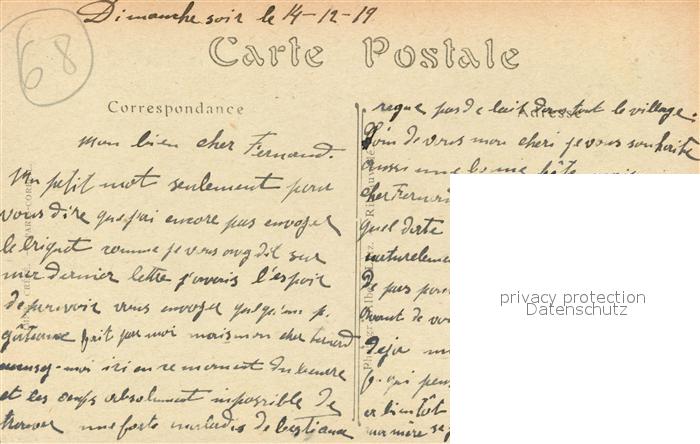 Dimanche soir le 14-12-19
68
Carte Postale
Correspondance
Adresse
mon bien cher Fernand.
Un petit mot seulement pour
vous dire que j'ai encore pas envoyer
le briquet comme je vous avez dit sur
mer dernier lettre j'avais l'espoir
de pouvoir vous envoyer quelques p.
gâteaux fait par moi mais mon cher
-moi ici en ce moment du beurre
et les oeufs absolument impossible de
trouver une forte maladie de bestiaux
reque pas de lait dans tout le village.
Loin de vous mon cheri je vous souhaite
aussi une bonne fête
cher Fernand
quel date
naturelleme
de pas pou
avant de vo
Deja
qui pens
er bientôt
privacy protection
Datenschutz